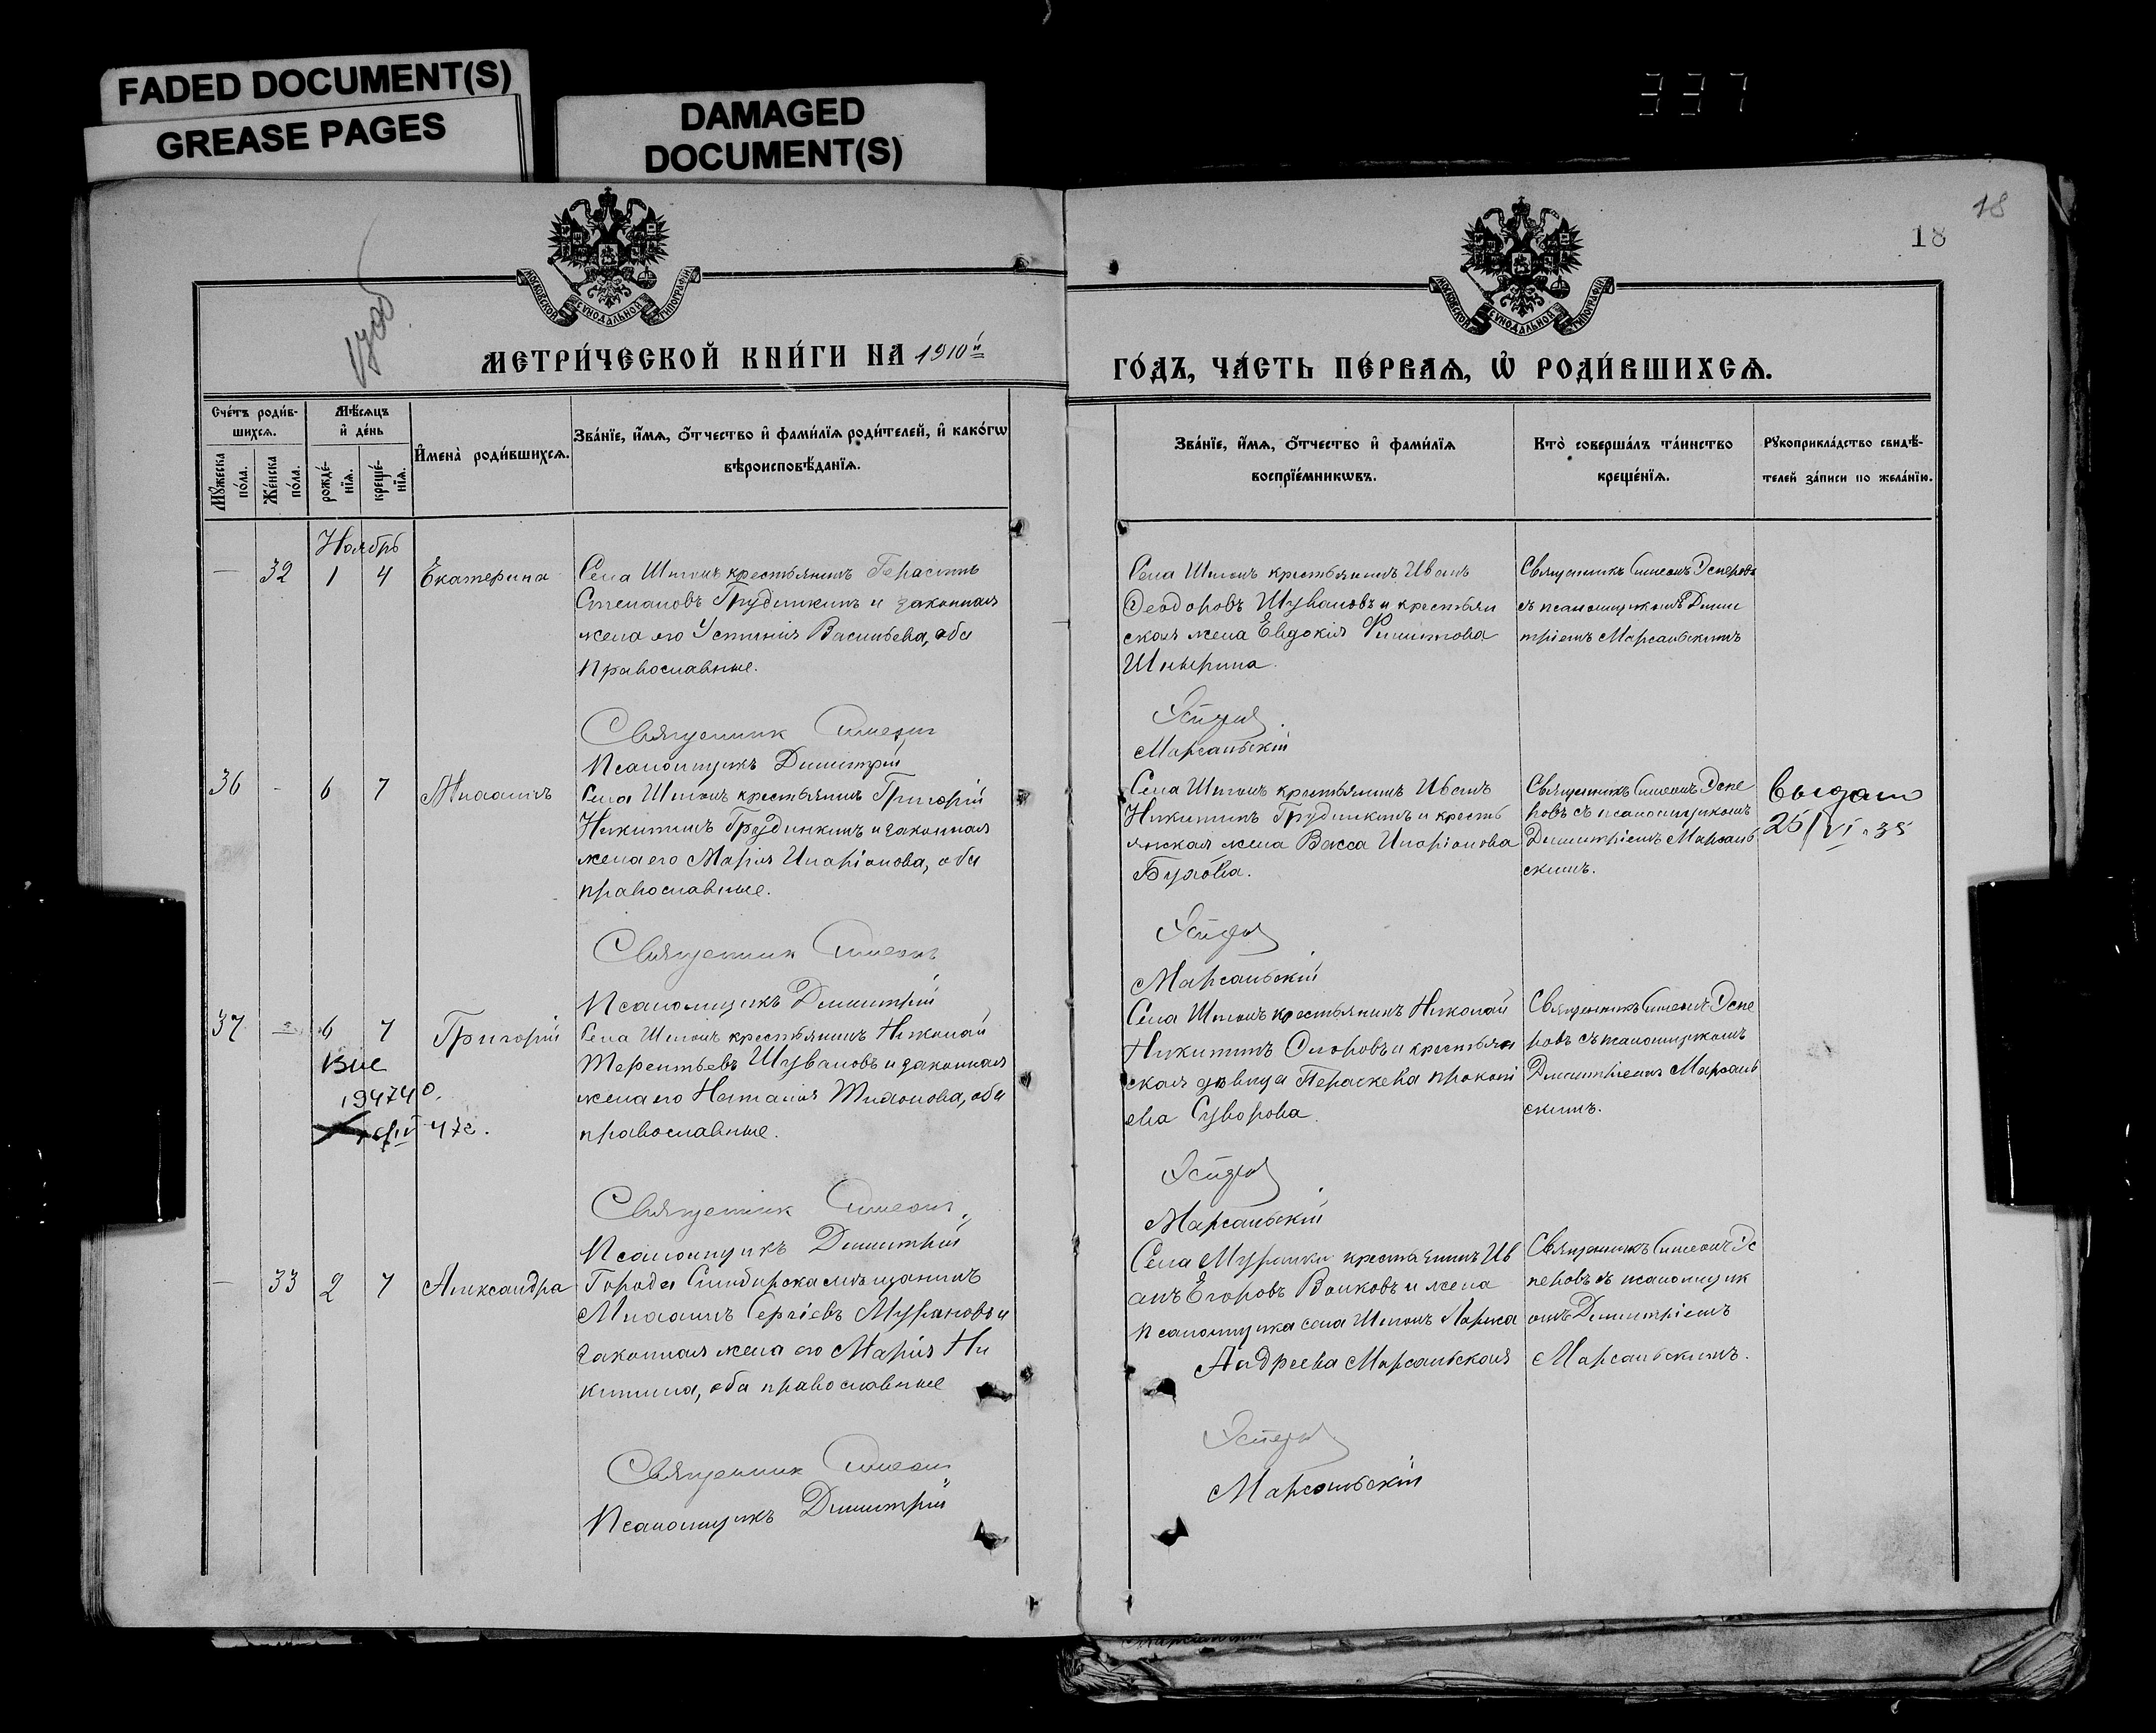 FADED DOCUMENT(S)
GREASE PAGES
DAMAGED
DOCUMENT(S)
337
18
18
МОСКОВСКОЙ СѴНОДАЛЬНОЙ ТИПОГРАФІИ
МОСКОВСКОЙ СѴНОДАЛЬНОЙ ТИПОГРАФІИ
МЕТРИ́ЧЕСКОЙ КНИ́ГИ НА 1910й
ГО́ДЪ, ЧА́СТЬ ПЕ́РВАѦ, Ѡ҆ РОДИ́ВШИХСѦ.
Сче́тъ роди́в-
шихсѧ.
Мꙋ́жеска по́ла.
Же́нска по́ла.
Мѣ́сѧцъ
и҆ де́нь
рожде́-нїѧ.
креще́-нїѧ.
И҆мена̀ роди́вшихсѧ.
Зва́нїе, и҆́мѧ, ѻ҆́тчество и҆ фами́лїѧ роди́телей, и҆ како́гѡ
вѣроисповѣ́данїѧ.
Зва́нїе, и҆́мѧ, ѻ҆́тчество и҆ фами́лїѧ
воспрїе́мникѡвъ.
Кто̀ соверша́лъ та́инство
креще́нїѧ.
Рꙋкоприкла́дство свидѣ́-
телей за́писи по жела́нїю.
Ноябрь
— 32 1 4 Екатерина
Села Шигонъ крестьянинъ Герасимъ
Степановъ Грудинкинъ и законная
жена его Устинія Васильева, оба
православные.
Священникъ Симеонъ
Псаломщикъ Димитрій
Села Шигонъ крестьянинъ Иванъ
Ѳеодоровъ Шувановъ и крестьян
ская жена Евдокія Филиппова
Священникъ Симеонъ Эсперовъ
съ псаломщикомъ Дими
тріемъ Марсальскимъ
Эсперовъ
Марсальскій
36 - 6 7 Михаилъ
Села Шигонъ крестьянинъ Григорій
Никитинъ Грудинкинъ и законная
жена его Марія Иларіонова, оба
православные.
Священникъ Симеонъ
Псаломщикъ Димитрій
Села Шигонъ крестьянинъ Иванъ
Никитинъ Грудинкинъ и кресть
янская жена Васса Иларіонова
Священникъ Симеонъ Эспе
ровъ съ псаломщикомъ
Димитріемъ Марсаль
скимъ.
Выдано
25/VI-35
Эсперовъ
Марсальскій
37 — 6 7 Григорій
194740.
Села Шигонъ крестьянинъ Николай
Терентьевъ Шувановъ и законная
жена его Наталія Тихонова, оба
православные.
Священникъ Симеонъ
Псаломщикъ Димитрій
Села Шигонъ крестьянинъ Николай
Никитинъ и крестьян
ская дѣвица Параскева Прокопі
ева Суворова.
Священникъ Симеонъ Эспе
ровъ съ псаломщикомъ
Димитріемъ Марсаль
скимъ.
Эсперовъ
Марсальскій
— 33 2 7 Александра
Города Симбирска мѣщанинъ
Михаилъ Сергіевъ Мурановъ и
законная жена его Марія Ни
китина, оба православные
Священникъ Симеонъ
Псаломщикъ Димитрій
Села Муранки крестьянинъ Ив
анъ Егоровъ Волковъ и жена
псаломщика села Шигонъ Лариса
Андреева Марсальская
Священникъ Симеонъ Эс
перовъ съ псаломщик
омъ Димитріемъ
Марсальскимъ.
Эсперовъ
Марсальскій